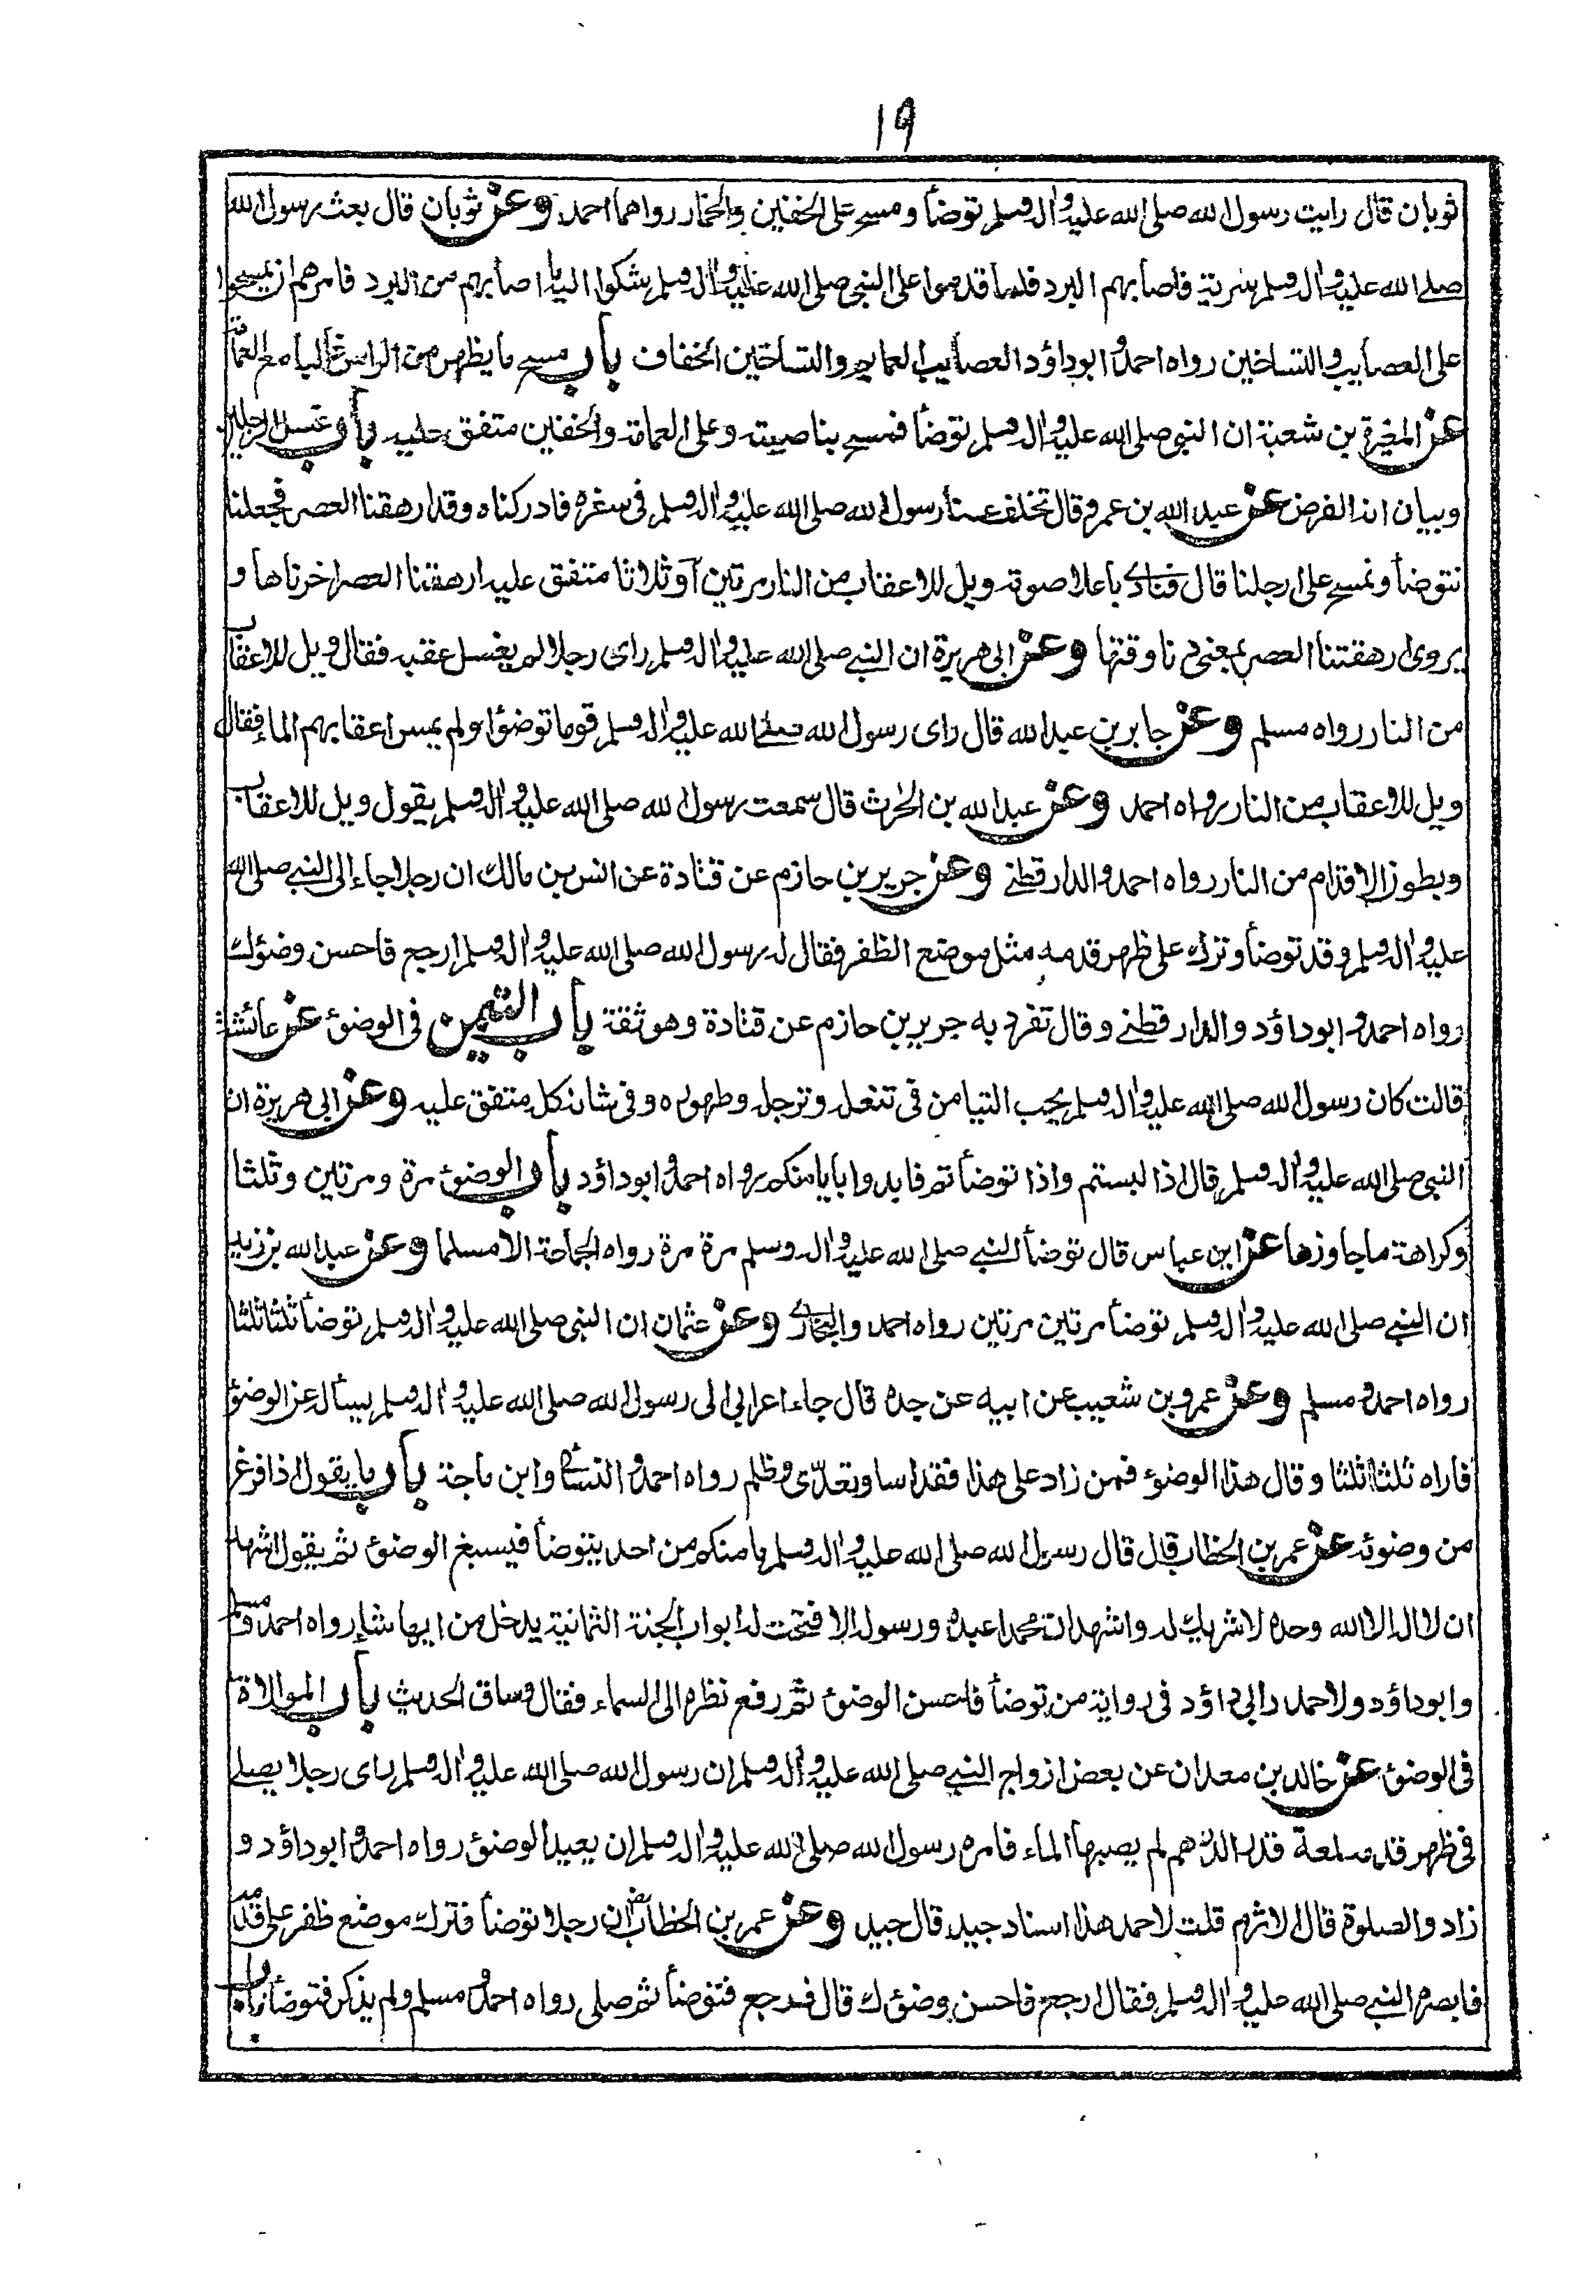 ١٩
ثوبان قال رايت رسول الله صلى الله عليه واله وسلم توضأ ومسح على الخفين والخمار رواهما احمد وعن ثوبان قال بعث رسول الله
صلى الله عليه واله وسلم سرية فاصابهم البرد فلما قدموا على النبي صلى الله عليه واله وسلم شكوا اليه ما اصابهم من البرد فامرهم ان يمسحوا
على العصايب والتساخين رواه احمد وابوداؤد العصايب العمايم والتساخين الخفاف باب مسح ما يظهر من الراس غالبا مع العمامة
عن المغيرة بن شعبة ان النبي صلى الله عليه واله وسلم توضأ فمسح بناصيته وعلى العمامة والخفين متفق عليه باب غسل الرجلين
وبيان انه الفرض عن عبد الله بن عمرو قال تخلف عنا رسول الله صلى الله عليه واله وسلم في سفره فادركناه وقد ارهقنا العصر فجعلنا
نتوضأ ونمسح على ارجلنا قال فنادى باعلا صوته ويل للاعقاب من النار مرتين او ثلاثا متفق عليه ارهقنا العصر اخرناها و
يروى ارهقتنا العصر بمعنى دنا وقتها وعن ابي هريرة ان النبي صلى الله عليه واله وسلم راى رجلا لم يغسل عقبه فقال ويل للاعقاب
من النار رواه مسلم وعن جابر بن عبد الله قال راى رسول الله صلى الله عليه واله وسلم قوما توضؤا ولم يمس اعقابهم الماء فقال
ويل للاعقاب من النار رواه احمد وعن عبد الله بن الحرث قال سمعت رسول الله صلى الله عليه واله وسلم يقول ويل للاعقاب
وبطون الاقدام من النار رواه احمد والدارقطني وعن جرير بن حازم عن قتادة عن انس بن مالك ان رجلا جاء الى النبي صلى الله
عليه واله وسلم وقد توضأ وترك على ظهر قدمه مثل موضع الظفر فقال له رسول الله صلى الله عليه واله وسلم ارجع فاحسن وضوئك
رواه احمد وابوداؤد والدارقطني وقال تفرد به جرير بن حازم عن قتادة وهو ثقة باب التيمن في الوضوء عن عائشة
قالت كان رسول الله صلى الله عليه واله وسلم يحب التيامن في تنعله وترجله وطهوره وفي شانه كله متفق عليه وعن ابي هريرة ان
النبي صلى الله عليه واله وسلم قال اذا لبستم واذا توضأتم فابدوا بايامنكم رواه احمد وابوداؤد باب الوضوء مرة ومرتين وثلثا
وكراهة ما جاوزها عن ابن عباس قال توضأ النبي صلى الله عليه واله وسلم مرة مرة رواه الجماعة الا مسلما وعن عبد الله بن زيد
ان النبي صلى الله عليه واله وسلم توضأ مرتين مرتين رواه احمد والبخارى وعن عثمان ان النبي صلى الله عليه واله وسلم توضأ ثلثا ثلثا
رواه احمد ومسلم وعن عمرو بن شعيب عن ابيه عن جده قال جاء اعرابي الى رسول الله صلى الله عليه واله وسلم يسأله عن الوضوء
فاراه ثلثا ثلثا وقال هذا الوضوء فمن زاد على هذا فقد اسا وتعدّى وظلم رواه احمد والنسائى وابن ماجة باب ما يقول اذا فرغ
من وضوئه عن عمر بن الخطاب قال قال رسول الله صلى الله عليه واله وسلم ما منكم من احد يتوضأ فيسبغ الوضوء ثم يقول اشهد
ان لا اله الا الله وحده لا شريك له واشهد ان محمدا عبده ورسوله الا فتحت له ابواب الجنة الثمانية يدخل من ايها شاء رواه احمد ومسلم
وابوداؤد ولاحمد وابي داؤد في رواية من توضأ فاحسن الوضوء ثم رفع نظره الى السماء فقال وساق الحديث باب الموالاة
في الوضوء عن خالد بن معدان عن بعض ازواج النبي صلى الله عليه واله وسلم ان رسول الله صلى الله عليه واله وسلم راى رجلا يصلى
في ظهر قدمه لمعة قدر الدرهم لم يصبها الماء فامره رسول الله صلى الله عليه واله وسلم ان يعيد الوضوء رواه احمد وابوداؤد و
زاد والصلوة قال الاثرم قلت لاحمد هذا اسناد جيد قال جيد وعن عمر بن الخطابؓ ان رجلا توضأ فترك موضع ظفر على قدمه
فابصره النبي صلى الله عليه واله وسلم فقال ارجع فاحسن وضوءك قال فرجع فتوضأ ثم صلى رواه احمد ومسلم ولم يذكر فتوضأ باب